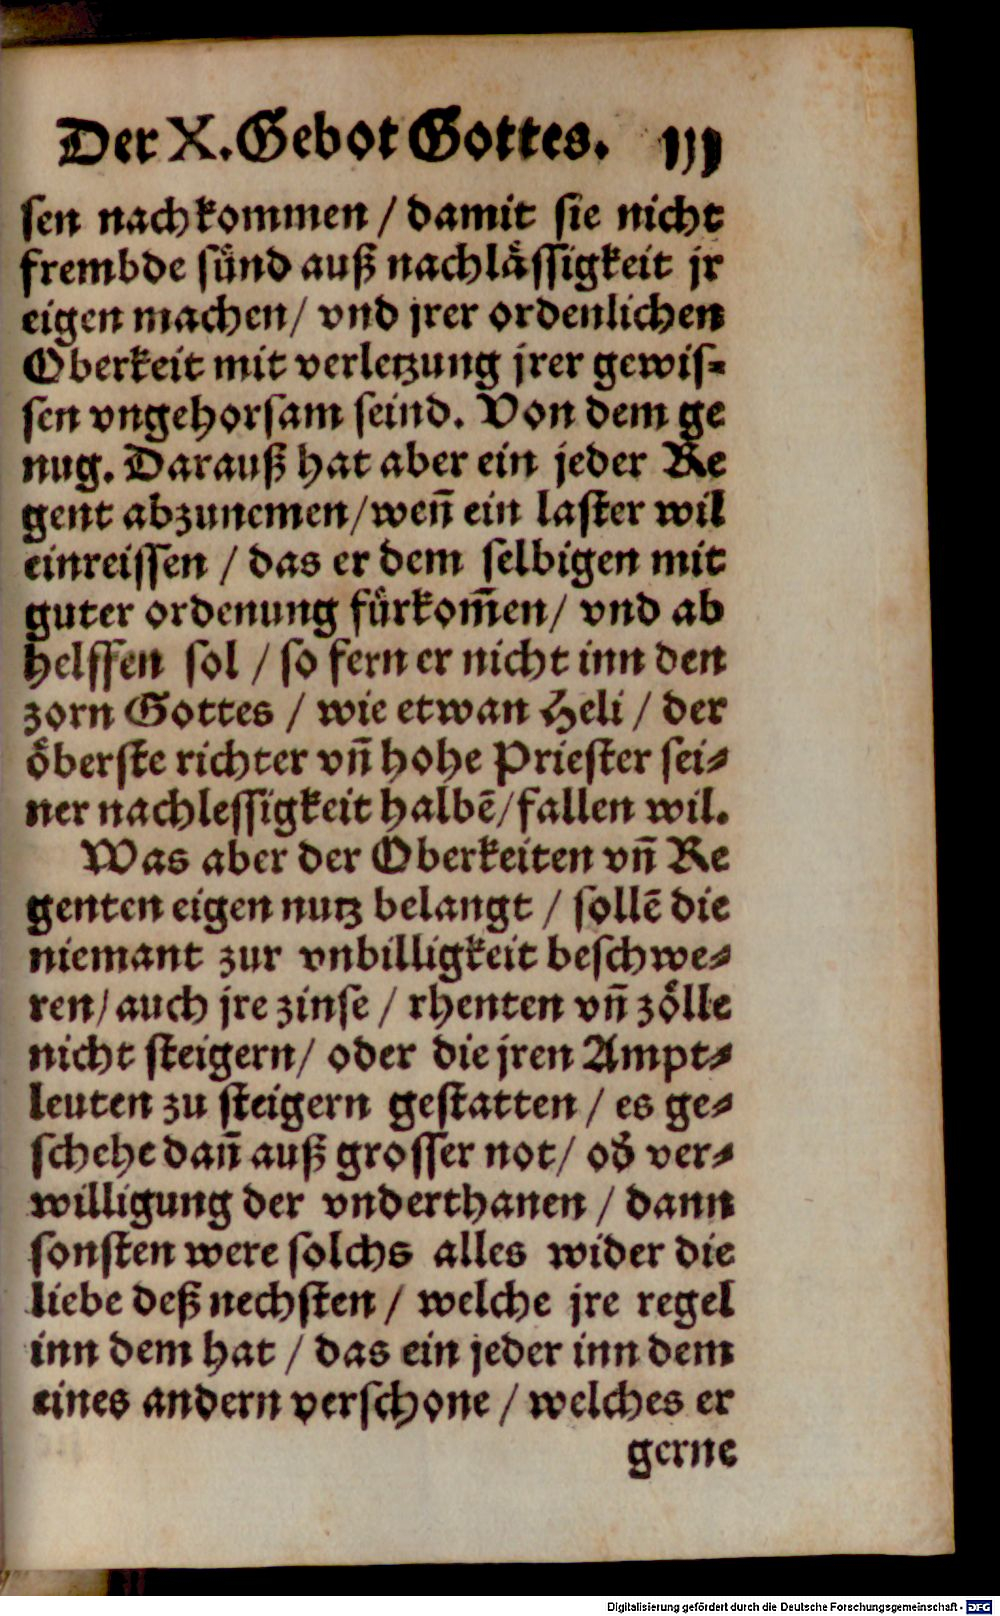 Der X. Gebot Gottes. 111
sen nachkommen / damit sie nicht
frembde sünd auß nachlässigkeit jr
eigen machen / vnd jrer ordenlichen
Oberkeit mit verletzung jrer gewis-
sen vngehorsam seind. Von dem ge
nug. Darauß hat aber ein jeder Re
gent abzunemen / weñ ein laster wil
einreissen / das er dem selbigen mit
guter ordenung fürkom̃en / vnd ab
helffen sol / so fern er nicht inn den
zorn Gottes / wie etwan Heli / der
öberste richter vñ hohe Priester sei-
ner nachlessigkeit halbẽ / fallen wil.
Was aber der Oberkeiten vñ Re
genten eigen nutz belangt / sollẽ die
niemant zur vnbilligkeit beschwe-
ren / auch jre zinse / rhenten vñ zölle
nicht steigern / oder die jren Ampt-
leuten zu steigern gestatten / es ge-
schehe dañ auß grosser not / od̕ ver-
willigung der vnderthanen / dann
sonsten were solchs alles wider die
liebe deß nechsten / welche jre regel
inn dem hat / das ein jeder inn dem
eines andern verschone / welches er
gerne
Digitalisierung gefördert durch die Deutsche Forschungsgemeinschaft - DFG